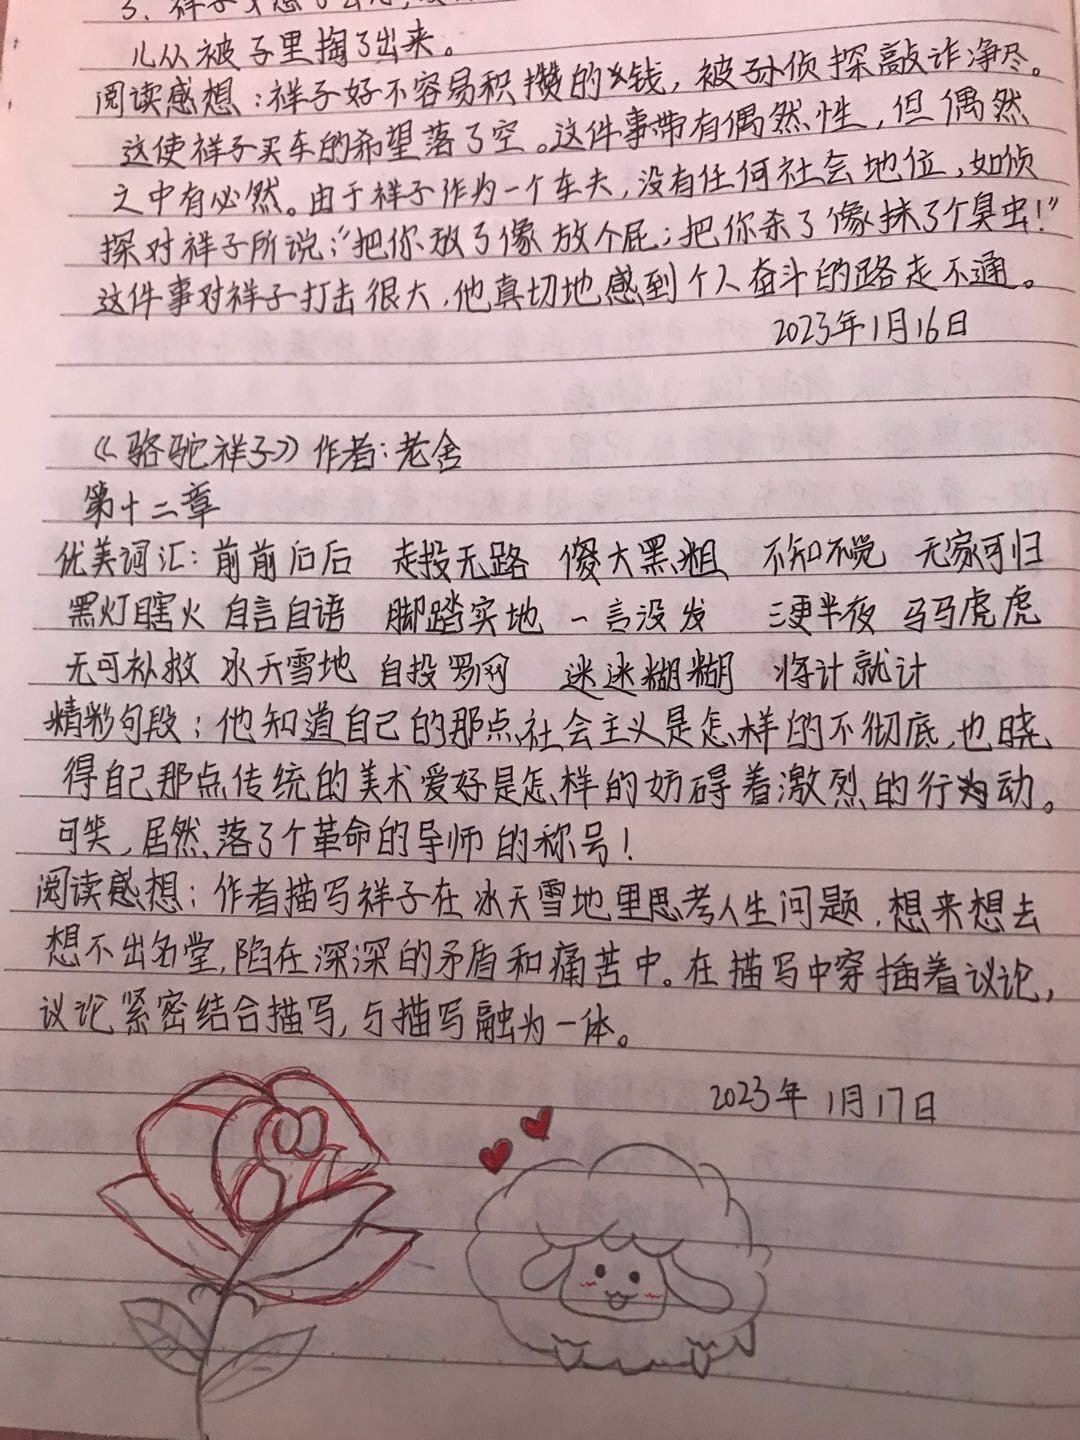 3、祥子
儿从被子里掏了出来。
阅读感想：祥子好不容易积攒的钱，被孙侦探敲诈净尽。
这使祥子买车的希望落了空。这件事带有偶然性，但偶然
之中有必然。由于祥子作为一个车夫，没有任何社会地位，如侦
探对祥子所说："把你放了像放个屁；把你杀了像抹了个臭虫！"
这件事对祥子打击很大，他真切地感到个人奋斗的路走不通。
2023年1月16日
《骆驼祥子》作者：老舍
第十二章
优美词汇：前前后后 走投无路 傻大黑粗 不知不觉 无家可归
黑灯瞎火 自言自语 脚踏实地 一言没发 三更半夜 马马虎虎
无可补救 冰天雪地 自投罗网 迷迷糊糊 将计就计
精彩句段：他知道自己的那点社会主义是怎样的不彻底，也晓
得自己那点传统的美术爱好是怎样的妨碍着激烈的行动。
可笑，居然落了个革命的导师的称号！
阅读感想：作者描写祥子在冰天雪地里思考人生问题，想来想去
想不出名堂，陷在深深的矛盾和痛苦中。在描写中穿插着议论，
议论紧密结合描写，与描写融为一体。
2023年1月17日